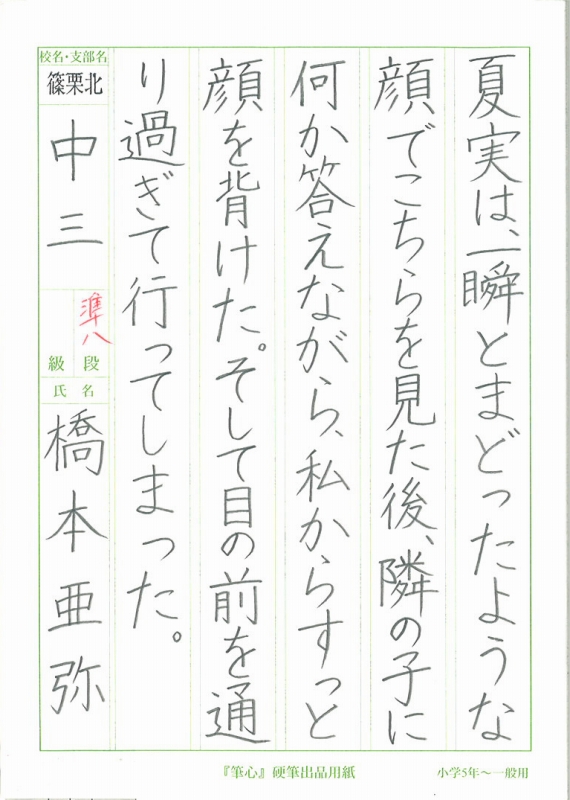 夏実は、一瞬とまどったような
顔でこちらを見た後、隣の子に
何か答えながら、私からすっと
顔を背けた。そして目の前を通
り過ぎて行ってしまった。
校名・支部名
篠栗北
中三
準八
級 段
氏名
橋本亜弥
『筆心』硬筆出品用紙
小学5年～一般用